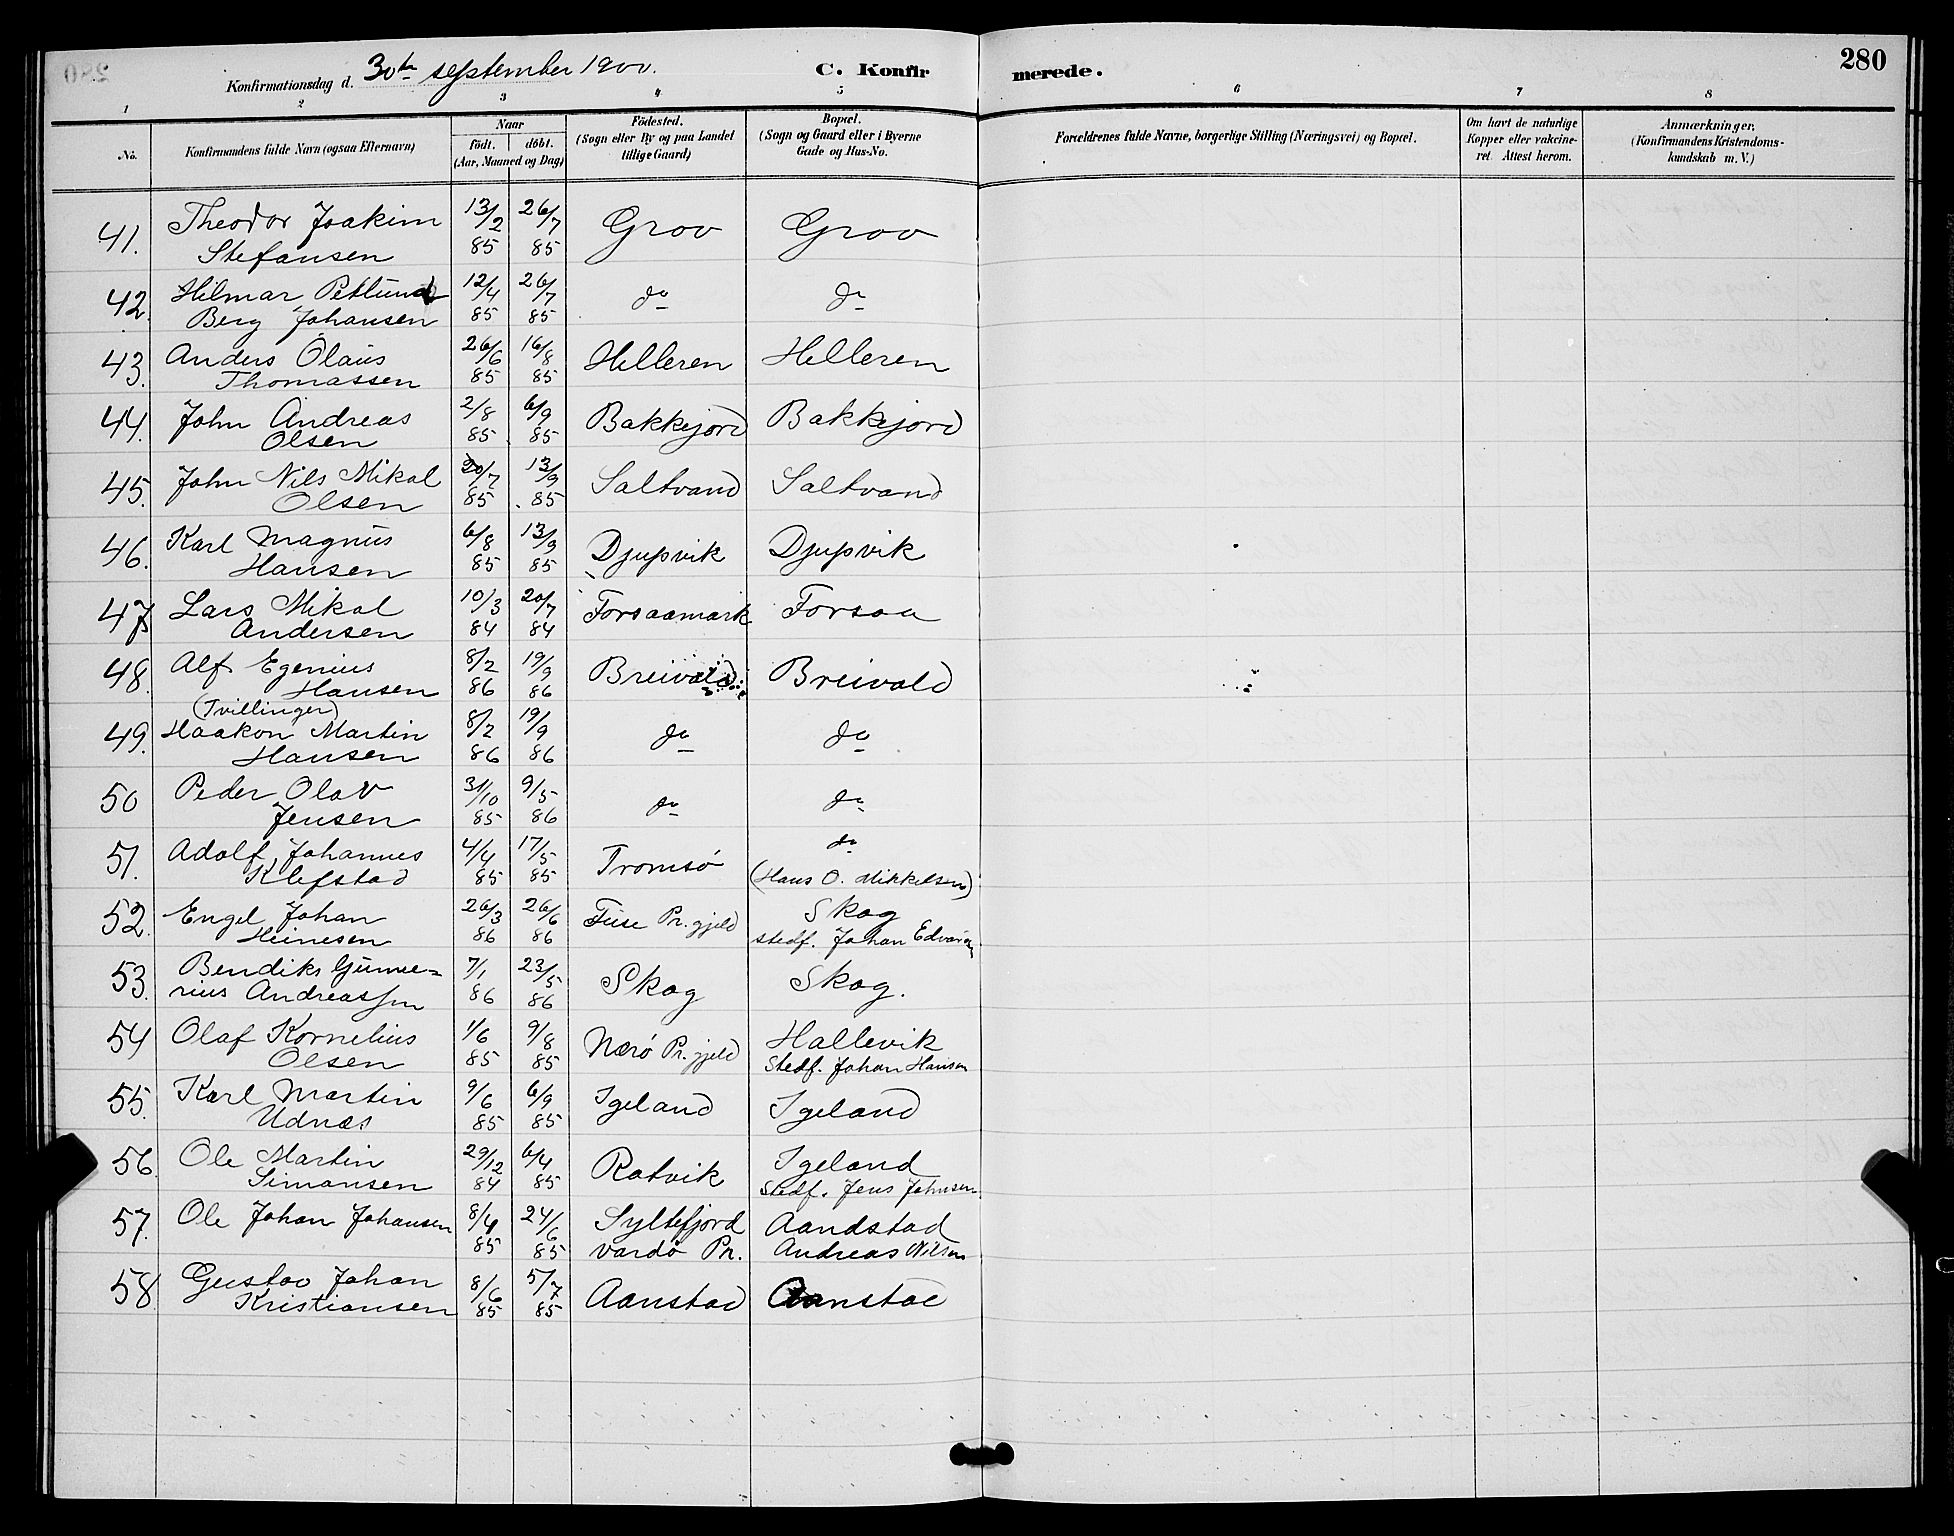 280
Konfirmationsdag d. 30te september 1900.
C. Konfirmerede.
1 2 3 4 5 6 7 8
No.
Konfirmandens fulde Navn (ogsaa Efternavn)
Naar
født. døbt.
(Aar, Maaned og Dag)
Fødested.
(Sogn eller By og paa Landet
tillige Gaard)
Bopæl.
(Sogn og Gaard eller i Byerne
Gade og Hus-No.
Forældrenes fulde Navne, borgerlige Stilling (Næringsvei) og Bopæl.
Om havt de naturlige
Kopper eller vakcine-
ret. Attest herom.
Anmærkninger.
(Konfirmandens Kristendoms-
kundskab m. V.)
41. Theodor Joakim 13/2 26/7 Grov Grov
Stefansen 85 85
42. Hilmar Petlund 12/4 26/7 do do
Berg Johansen 85 85
43. Anders Olaus 26/6 16/8 Helleren Helleren
Thomassen 85 85
44. John Andreas 2/8 6/9 Bakkejord Bakkejord
Olsen 85 85
45. John Nils Mikal 20/7 13/9 Saltvand Saltvand
Olsen 85 85
46. Karl Magnus 6/8 13/9 Djupvik Djupvik
Hansen 85 85
47. Lars Mikal 10/3 20/7 Forsaamark Forsaa
Andersen 84 84
48. Alf Egenius 8/2 19/9 Breivold Breivold
Hansen 86 86
(Tvillinger)
49. Haakon Martin 8/2 19/9 do do
Hansen 86 86
50 Peder Olav 31/10 9/5 do do
Jensen 85 86
51. Adolf Johannes 4/4 17/5 Tromsø do
Klefstad 85 85 (Hans O. Mikkelsen)
52. Engel Johan 26/3 26/6 Fuse Pr.gjeld Skog
Heinesen 86 86 stedf. Johan
53. Bendiks Gume= 7/1 23/5 Skog Skog.
rius Andreassen 86 86
54 Olaf Kornelius 1/6 9/8 Nærø Pr.gjeld Hallevik
Olsen 85 85 Stedf. Johan Hansen
55. Karl Martin 9/6 6/9 Igeland Igeland
Udnæs 85 85
56 Ole Martin 29/12 6/4 Rotvik Igeland
Simonsen 84 85 Stedf. Jens Johnsen
57. Ole Johan Johansen 8/4 24/6 Syltefjord Aandstad
85 85 Vardø Pr. Andreas Nilsen
58 Gustav Johan 8/6 5/7 Aanstad Aanstad
Kristiansen 85 85